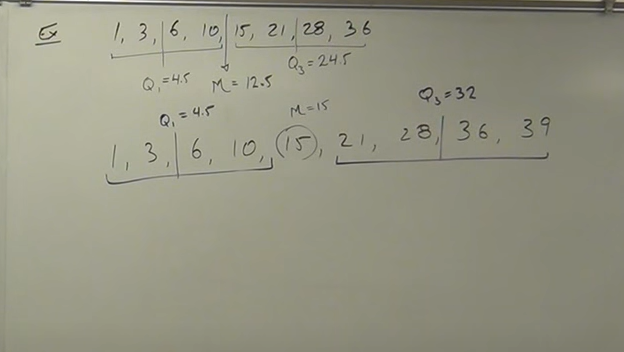 Ex 1, 3, 6, 10, 15, 21, 28, 36
Q₁=4.5 M=12.5 Q₃=24.5
Q₁=4.5 M=15 Q₃=32
1, 3, 6, 10, 15, 21, 28, 36, 39